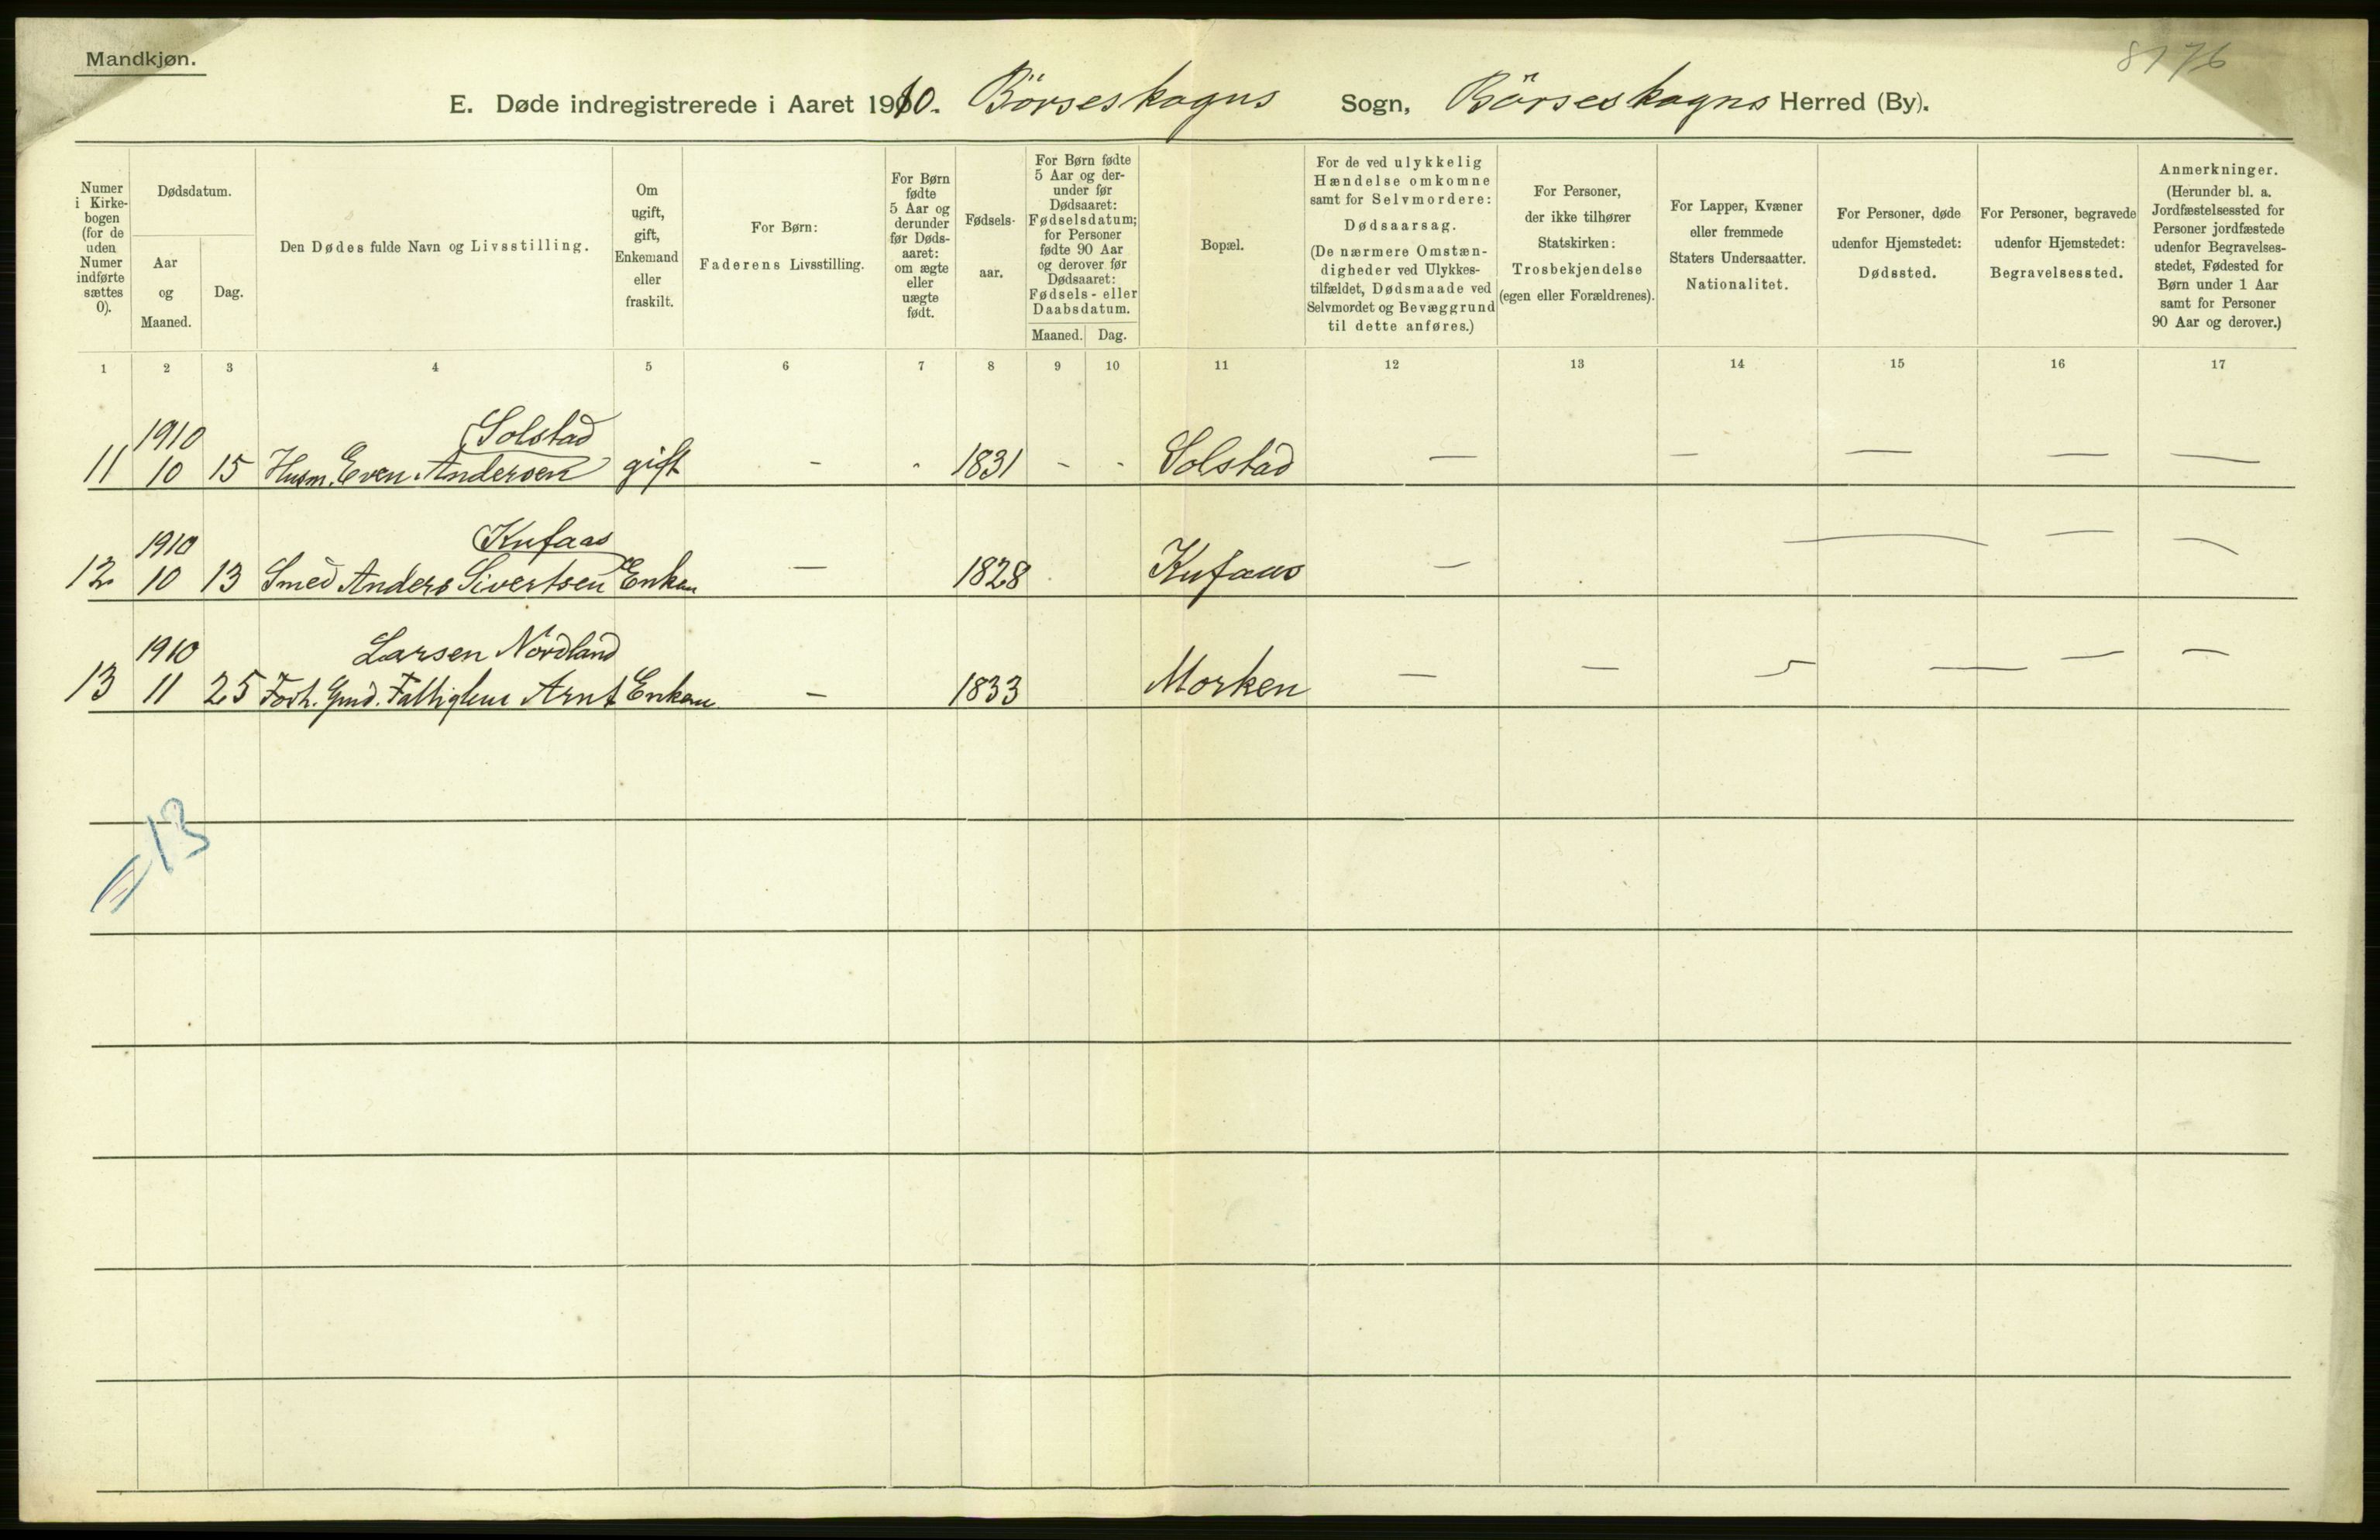 Mandkjøn.
8176
E. Døde indregistrerede i Aaret 1910. Börseskogns Sogn, Börseskogns Herred (By).
Numer i Kirke-bogen (for de uden Numer indførte sættes 0).
Dødsdatum.
Aar og Maaned.
Dag.
Den Dødes fulde Navn og Livsstilling.
Om ugift, gift, Enkemand eller fraskilt.
For Børn: Faderens Livsstilling.
For Børn fødte 5 Aar og derunder før Døds-aaret: om ægte eller uægte født.
Fødsels-aar.
For Børn fødte 5 Aar og der-under før Dødsaaret: Fødselsdatum; for Personer fødte 90 Aar og derover før Dødsaaret: Fødsels- eller Daabsdatum.
Maaned. Dag.
Bopæl.
For de ved ulykkelig Hændelse omkomne samt for Selvmordere: Dødsaarsag. (De nærmere Omstæn-digheder ved Ulykkes-tilfældet, Dødsmaade ved Selvmordet og Bevæggrund til dette anføres.)
For Personer, der ikke tilhører Statskirken: Trosbekjendelse (egen eller Forældrenes).
For Lapper, Kvæner eller fremmede Staters Undersaatter. Nationalitet.
For Personer, døde udenfor Hjemstedet: Dødssted.
For Personer, begravede udenfor Hjemstedet: Begravelsessted.
Anmerkninger. (Herunder bl. a. Jordfæstelsessted for Personer jordfæstede udenfor Begravelses-stedet, Fødested for Børn under 1 Aar samt for Personer 90 Aar og derover.)
1 2 3 4 5 6 7 8 9 10 11 12 13 14 15 16 17
1910 Solstad
11 10 15 Husm. Even Andersen gift - - 1831 - - Solstad — — — — —
1910 Kufaas
12 10 13 Smed Anders Sivertsen Enkem — 1828 Kufaas — — — —
1910 Larsen Nordland
13 11 25 Forh. Gmd. Fattiglem Arnt Enkem — 1833 Morken — — — — —
= 13